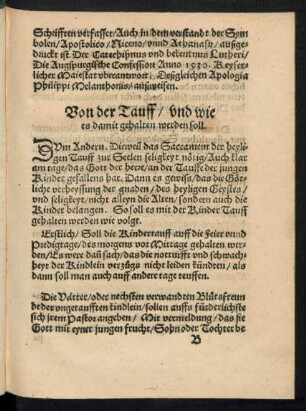 Schrifften verfasset/ Auch in dem verstande der Sym
bolen/ Apostolico/ Niceno/ vnnd Athanasij/ außge-
druckt ist. Der Catechismus vnd bekentnus Lutheri/
Die Augspurgische Confession Anno 1530. Keyser-
licher Maiestat vberantwort/ Deßgleichen Apologia
Philippi Melanthonis/ außweisen.
Von der Tauff/ vnd wie
es damit gehalten werden soll.
ZVm Andern. Dieweil das Sacrament der heyli-
gen Tauff zur Seelen seligkeyt nötig/ Auch klar
am tage/ das Gott der herre/ an der Tauffe der jungen
Kinder gefallens hat. Dann es gewiss/ das die Göt-
liche verheyssung der gnaden/ des heyligen Geystes/
vnd seligkeyt/ nicht alleyn die Alten/ sondern auch die
Kinder belangen. So soll es mit der Kinder Tauff
gehalten werden wie volgt.
Erstlich/ Soll die Kindertauff auff die Feier vnnd
Predigtage/ des morgens vor Mittage gehalten wer-
den/ Es were dañ sach/ das die notturfft vnd schwach-
heyt der Kindlein verzůgs nicht leiden kündten/ als
dann soll man auch auff andere tage teuffen.
Die Vätter/ oder nechsten verwandten Blůtsfreun
de der vngetaufften kindlein/ sollen auffs fürderlichste
sich jrem Pastor angeben/ Mit vermeldung/ das sie
Gott mit eyner jungen frucht/ Sohn oder Tochter be
B